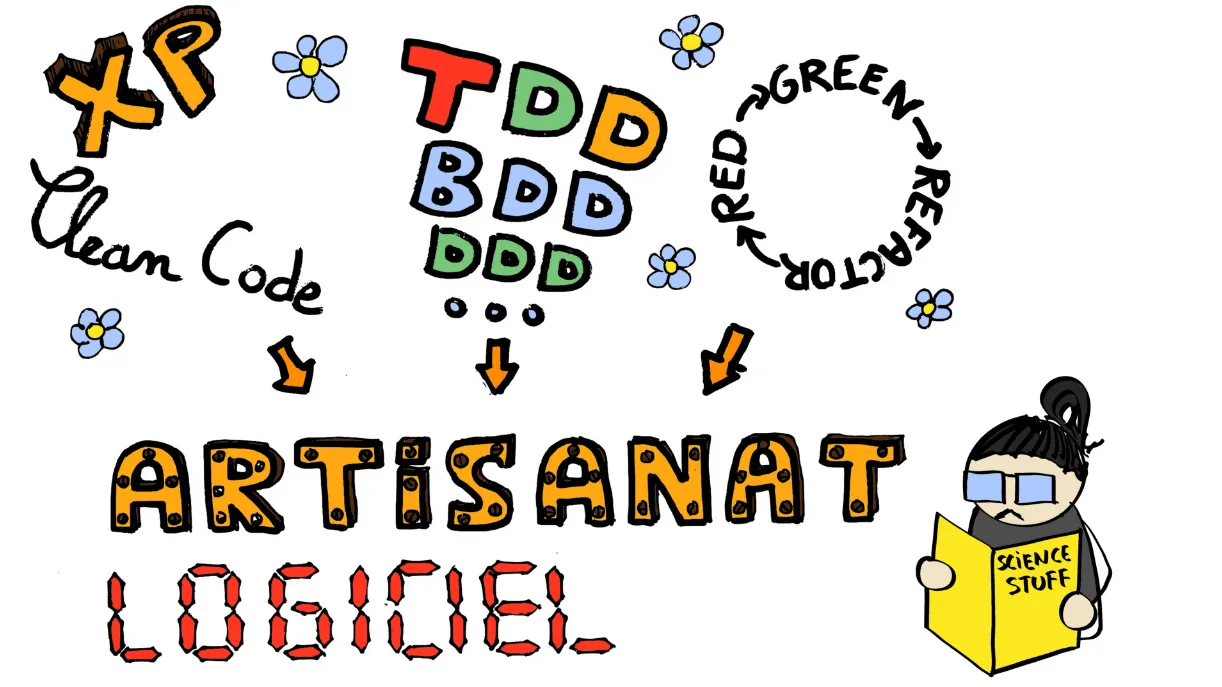 XP
Clean Code
TDD
BDD
DDD
...
RED
GREEN
REFACTOR
ARTiSANAT
LOGICIEL
SCiENCE
STUFF